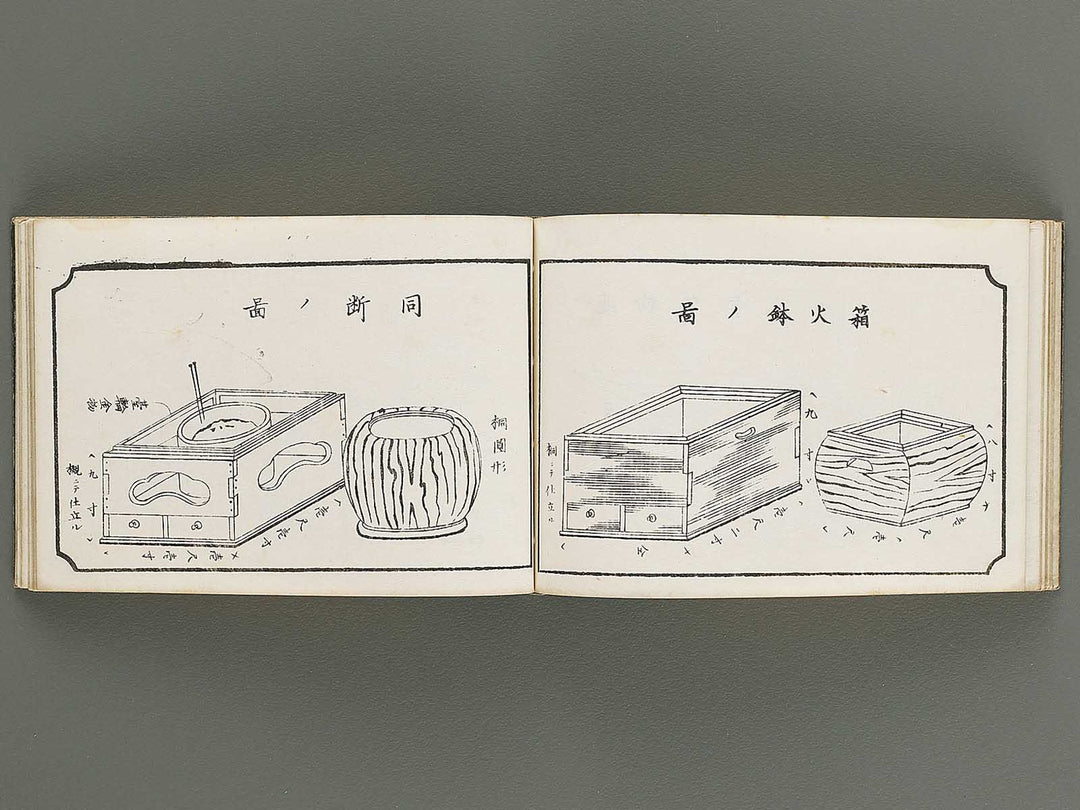 箱火鉢ノ圖
八寸
壱尺
壱尺
九寸
壱尺二寸
桐ニテ仕立ル
同断ノ圖
桐圓形
壱尺壱寸
壱尺壱寸
九寸
槻ニテ仕立ル